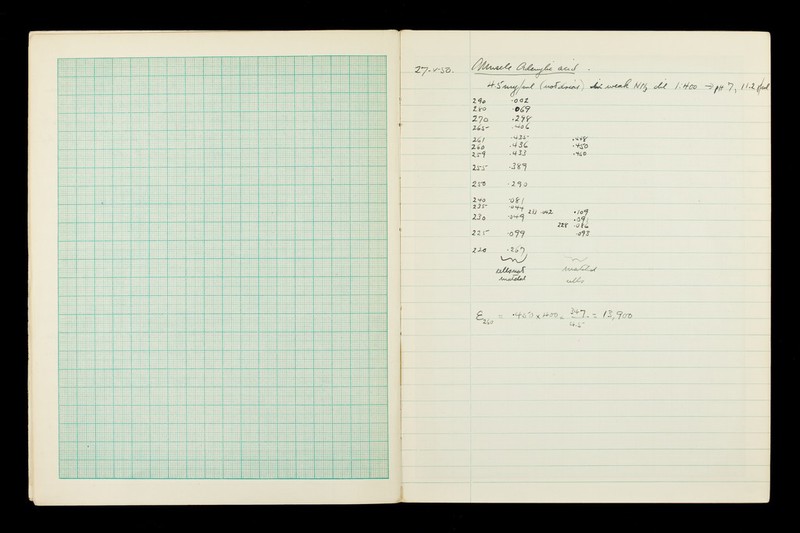 27-V-50. Muscle Adenylic acid.
4.5mg/ml (not dried) in weak NH3 dil 1:400 → pH 7, 11.2
290 .002
280 .069
270 .298
265 .406
261 .435 .448
260 .436 .450
259 .433 .450
255 .389
250 .290
240 .081
235 .044
232 .042 .109
230 .049 .091
228 .086
225 .099 .093
220 .267
cells not matched
matched cells
ε260 = × 400 × 347 / 4.5 = 13,900